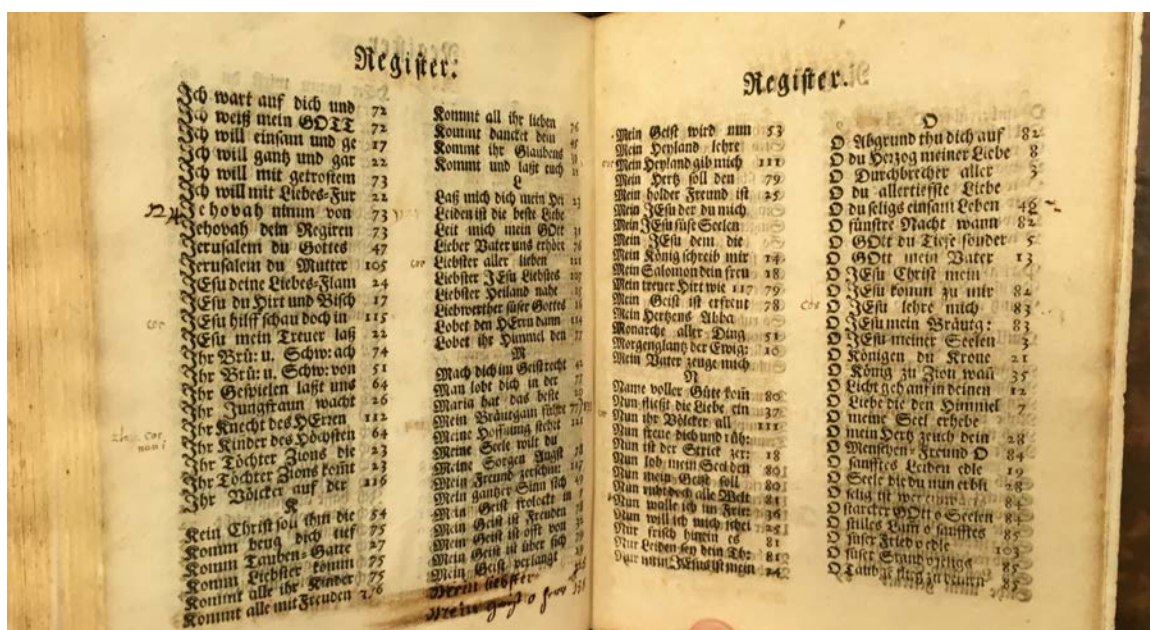 Register.
Ich wart auf dich und 72
Ich weiß mein GOTT 72
Ich will einsam und ge 17
Ich will gantz und gar 22
Ich will mit getrostem 73
Ich will mit Liebes-Fur 22
Jehovah nimm von 73
Jehovah dein Regiren 73
Jerusalem du Gottes 47
Jerusalem du Mutter 105
JEsu deine Liebes-Flam 24
JEsu du Hirt und Bisch 17
cor JEsu hilff schau doch in 115
JEsu mein Treuer laß 22
Ihr Brü: u. Schw: ach 74
Ihr Brü: u. Schw: von 51
Ihr Gespielen laßt uns 64
Ihr Jungfraun wacht 26
Ihr Knecht des HErren 112
Ihr Kinder des Höchsten 64
Ihr Töchter Zions die 23
Ihr Töchter Zions komt 23
Ihr Völcker auf der 116
K
Kein Christ soll ihm die 54
Komm beug dich tief 75
Komm Tauben-Gatte 27
Komm Liebster komm 75
Kommt alle ihr Kinder 75
Kommt alle mit Freuden
Kommt all ihr lieben
Kommt dancket dem
Kommt ihr Glaubens
Kommt und laßt euch
L
Laß mich dich mein Hei
Leiden ist die beste Liebe
Leit mich mein GOtt
Lieber Vater uns erhör
cor Liebster aller lieben
Liebster JEsu Liebstes
Liebster Heiland nahe
Liebwerther süser Gottes
Lobet den HErrn dann
Lobet ihr Himmel den
M
Mach dich im Geist recht
Man lobt dich in der
Maria hat das beste
Mein Bräutgam führe
Meine Hoffnung stehet
Meine Seele wilt du
Meine Sorgen Angst
Mein Freund zerschm:
Mein gantzer Sinn sich
Mein Geist frolockt in
Mein Geist ist Freuden
Mein Geist ist offt von
Mein Geist ist über sich
Mein Geist verlangt
Mein liebster
Mein geist o
Register.
Mein Geist wird nun 53
Mein Heyland lehre
Mein Heyland gib mich 111
Mein Hertz soll den 79
Mein holder Freund ist 25
Mein JEsu der du mich
Mein JEsu süse Seelen
Mein JEsu dem die
Mein König schreib mir 14
Mein Salomon dein freu 18
Mein treuer Hirt wie 117 79
Mein Geist ist erfreut 78
Mein Hertzens Abba
Monarche aller Ding 51
Morgenglantz der Ewig: 10
Mein Vater zeuge mich
N
Name voller Güte kom 80
Nun fließt die Liebe ein 37
Nun ihr Völcker all 111
Nun freue dich und rüh:
Nun ist der Strick zer: 18
Nun lob mein Seel den 80
Nun mein Geist soll 80
Nun ruht doch alle Welt 81
Nun walle ich im Frie: 36
Nun will ich mich schei 25
Nur frisch hinein es 81
Nur Leiden sey dein Th: 81
Nur mein JEsus ist mein 24
O
O Abgrund thu dich auf 82
O du Herzog meiner Liebe 8
O Durchbrecher aller 3
O du allertiefste Liebe
O du seligs einsam Leben 46
O finstre Nacht wann 82
O GOtt du Tiefe sonder 5
O GOtt mein Vater 13
O JEsu Christ mein
O JEsu komm zu mir 82
cor O JEsu lehre mich 83
O JEsu mein Bräutg: 83
O JEsu meiner Seelen 3
O Königen du Krone 21
O König zu Zion wañ 35
O Licht geh auf in deinen 12
O Liebe die den Himmel 7
O meine Seel erhebe
O mein Hertz zeuch dein 28
O Menschen-Freund O 84
O sanfftes Leiden edle 19
O Seele die du nun erbst 28
O selig ist wer 84
O starcker GOtt o Seelen 84
O stilles Lam o sanfftes 85
O süser Fried o edle 103
O süser Stand o seligs 85